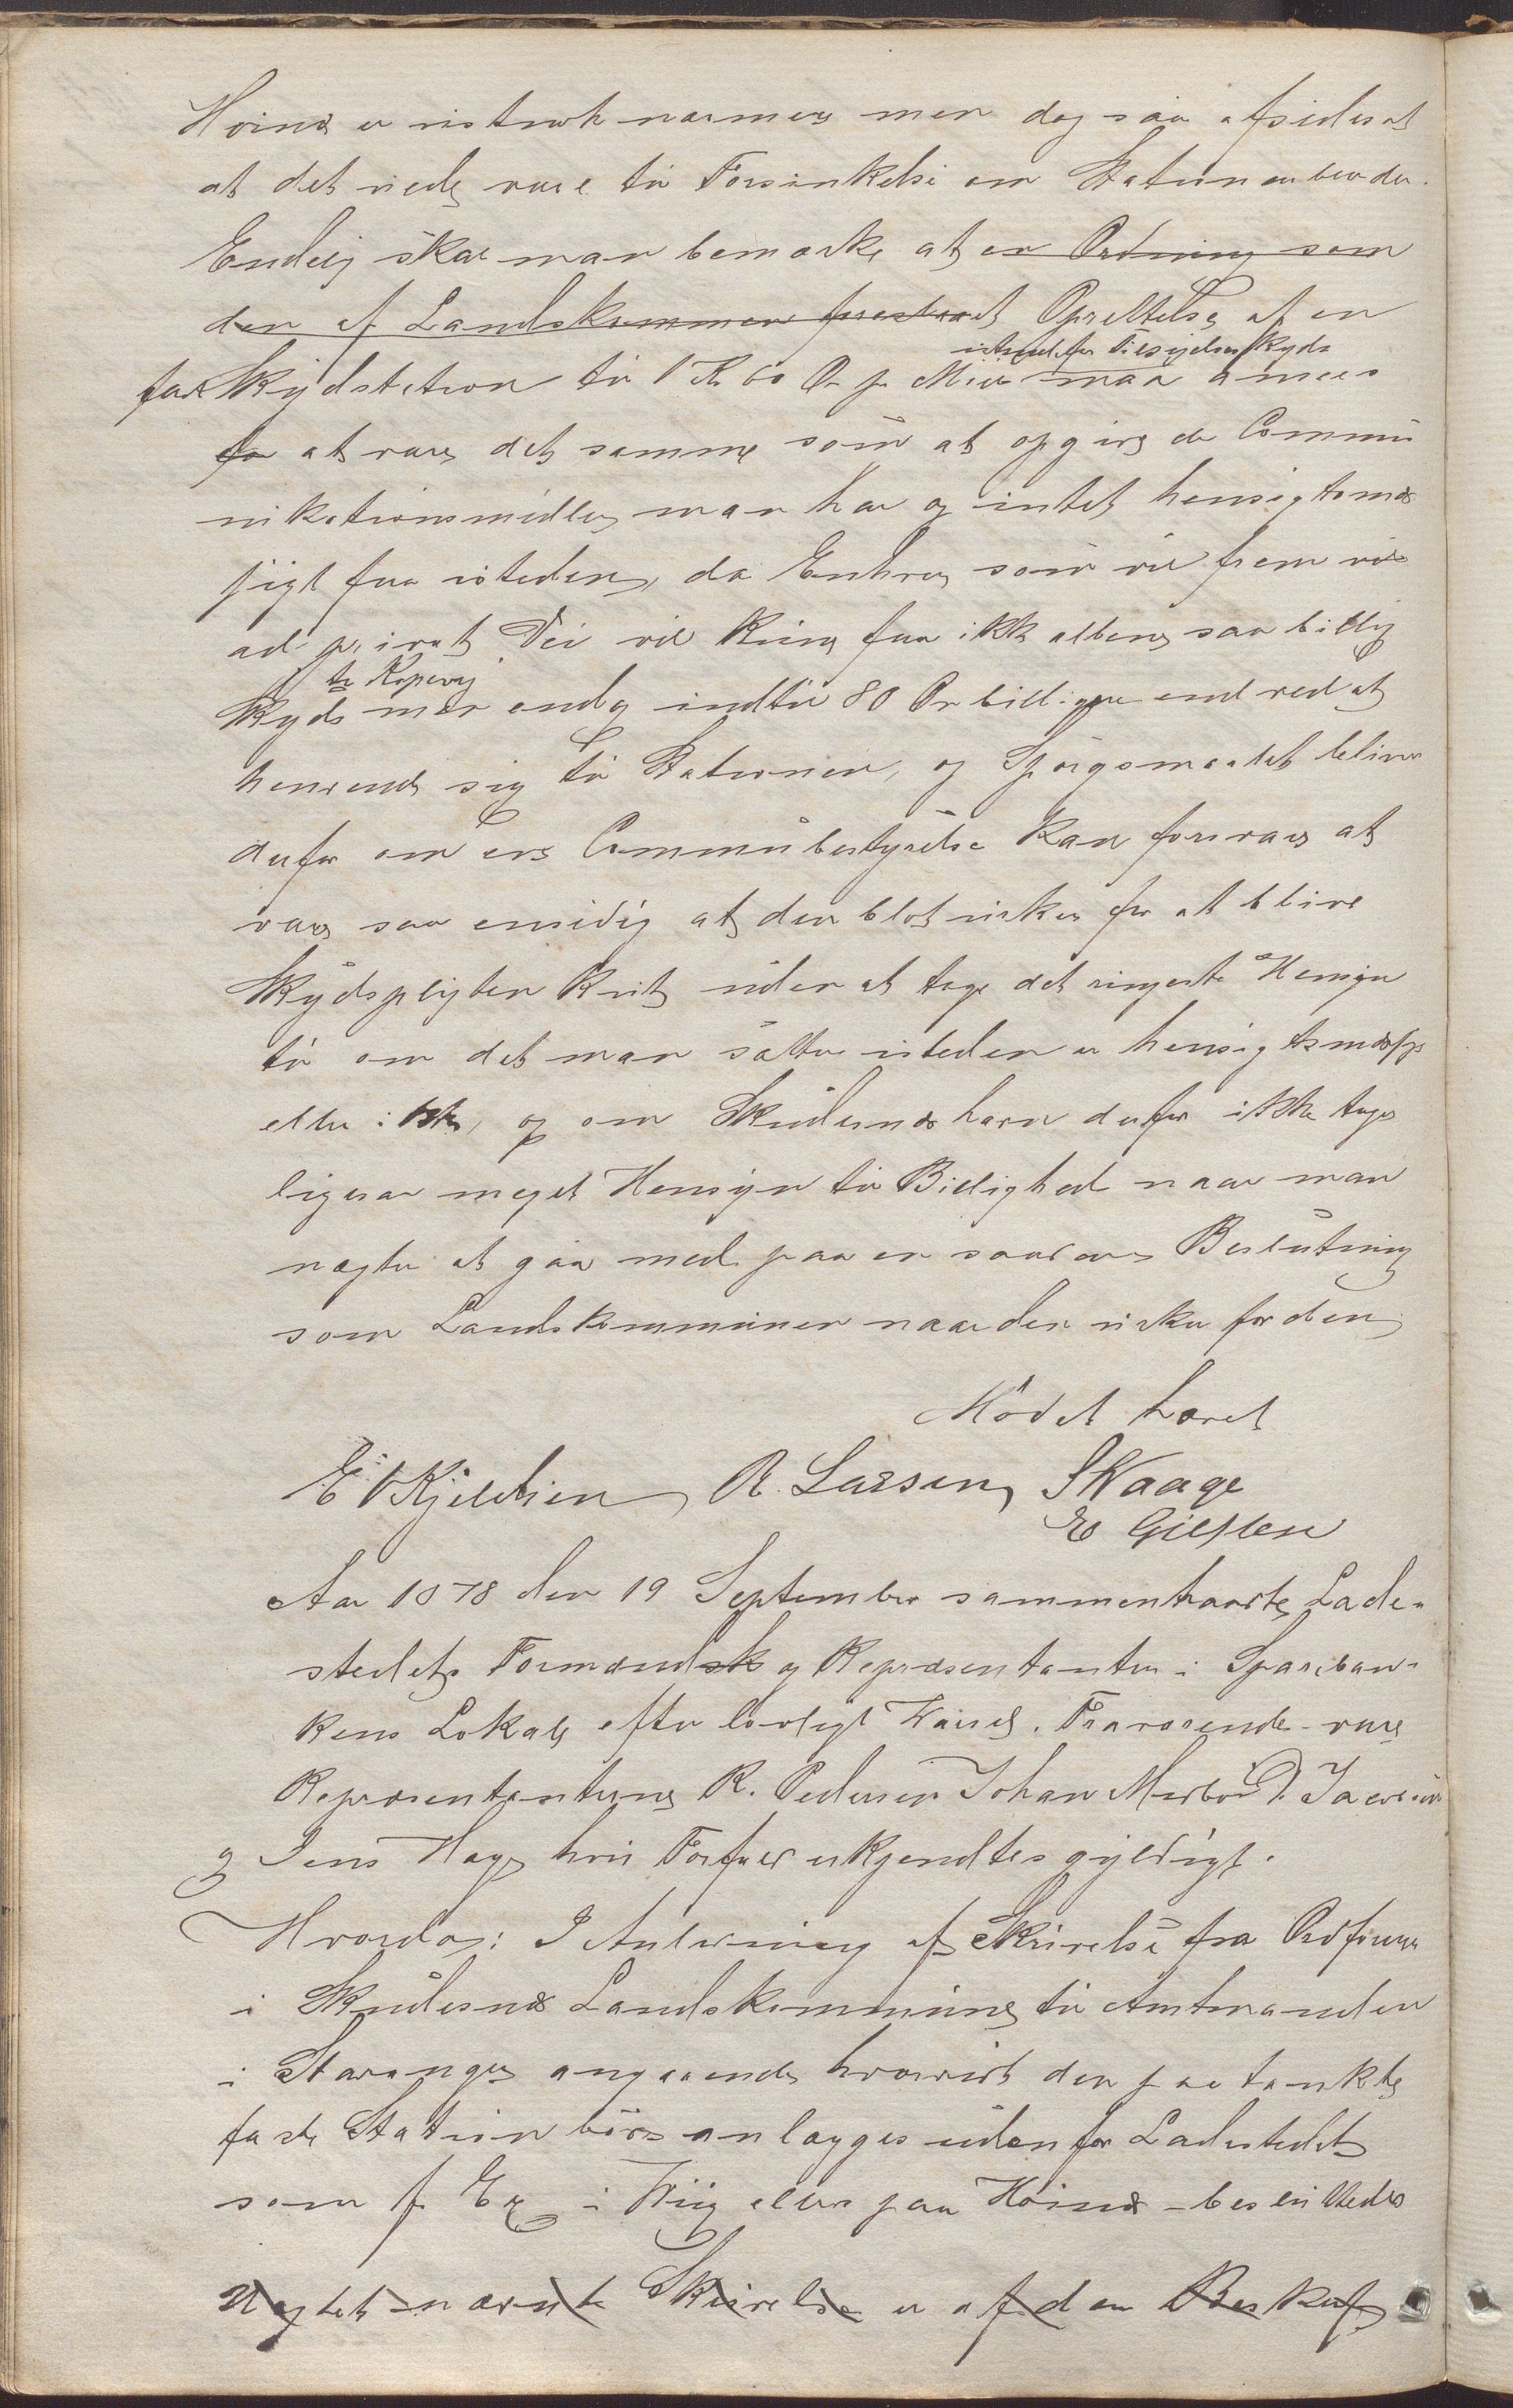 Høinæs er vistnok nærmere men dog saa afsides at
at det vilde være til Forsinkelse om Stationen blev der.
Endelig skal man bemærke at en Ordning som
den af Landskommunen foreslaaet Oprettelse af en
istedetfor Tilsigelsesskyds
fast Skydsstation til 1 Kr 60 Ør pr Miil maa ansees
for at være det samme som at opgive de Commu
nikationsmidler man har og intet hensigtsmæs
sigt faa isteden, da Enhver som vil frem vil
ad privat Vei vil kunne faa ikke alene saa billig
til Kopervig
Skyds men endog indtil 80 Ør billigere end ved at
henvende sig til Stationen, og Spørgsmaalet bliver
derfor om ens Communebestyrelse kan forsvare at
være saa ensidig at den blot virker for at blive
Skydspligten kvit uden at tage det ringeste Hensyn
til om det man sætter isteden er hensigtsmæssigt
eller ikke, og om Skudesnæshavn derfor ikke tager
ligesaa meget Hensyn til Billighed naar man
nægter at gaa med paa en saadan Beslutning
som Landskommunen naar den virker for den
Mødet hævet
E V Kjeldsen R. Larsen S Waage
E Gilsten
Aar 1878 den 19 September sammentraadte Lade-
stedets Formændsk og Repræsentanter i Spareban-
kens Lokale efter lovligt Varsel. Fraværende vare
Repræsentanterne R. Pedersen Johan D. Jacobsen
og Jens Hage hvis Forfald erkjendtes gyldigt.
Hvorda: I Anledning af Skrivelse fra Ordføreren
i Skudesnæs Landskommune til Amtmanden
i Stavanger angaaende hvorvidt den paatænkte
faste Station bør anlægges udenfor Ladestedet
som f. Ex i Viig eller paa Høinæs – besluttedes
Uagtet nævnte Skrivelse er af den Beskaf